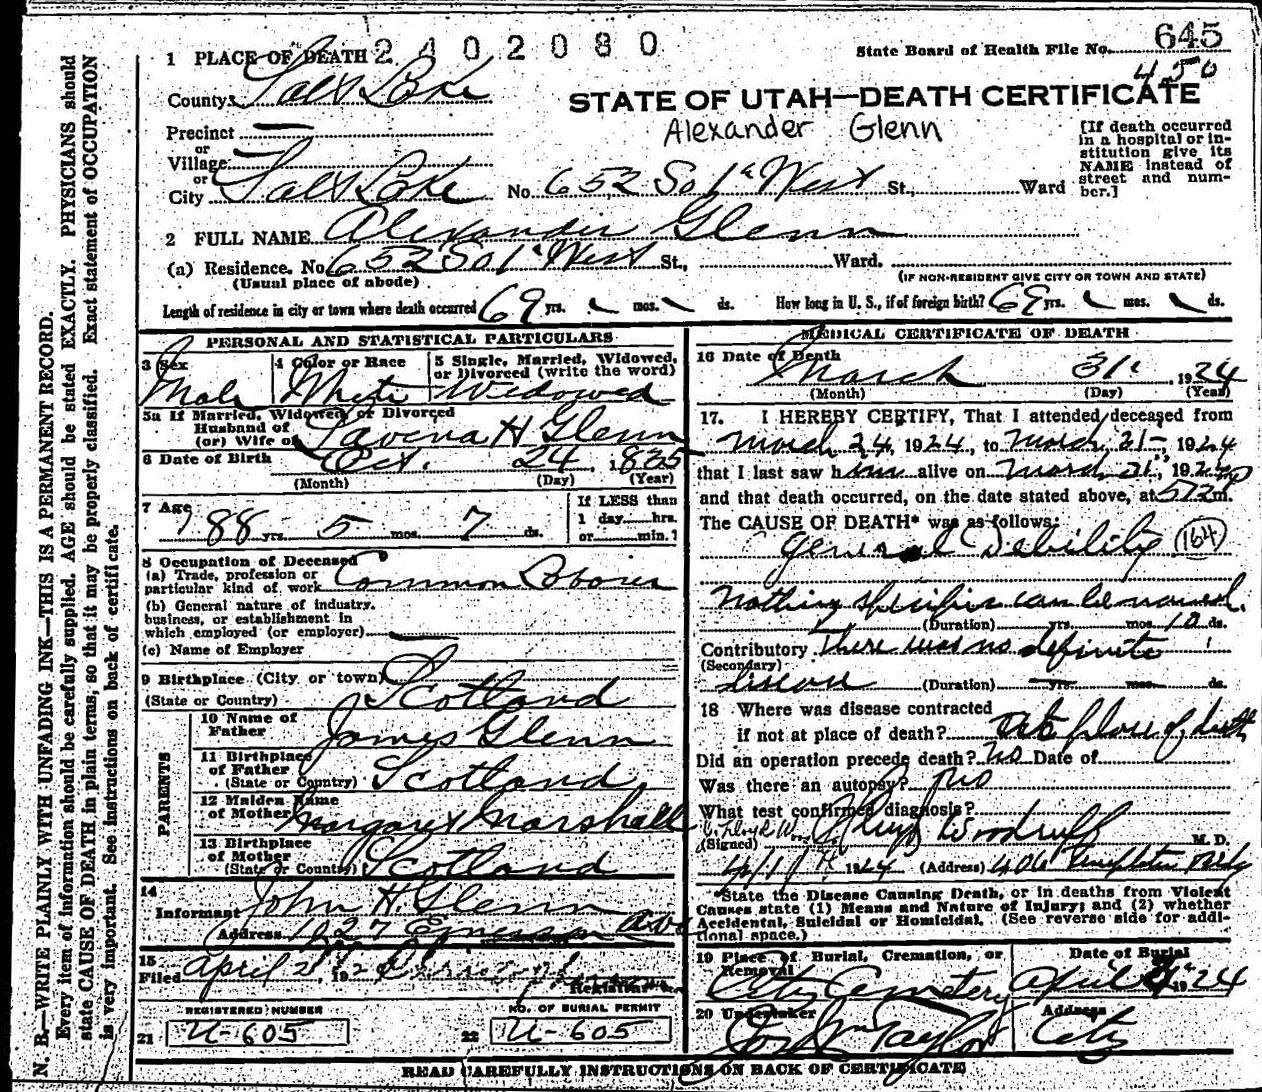 1 PLACE OF DEATH 2402080
State Board of Health File No. 645
450
County Salt Lake
STATE OF UTAH—DEATH CERTIFICATE
Alexander Glenn
[If death occurred in a hospital or institution give its NAME instead of street and number.]
Precinct
or
Village
or
City Salt Lake No. 652 So 1st West St., Ward
2 FULL NAME Alexander Glenn
(a) Residence. No. 652 So 1st West St., Ward.
(Usual place of abode) (IF NON-RESIDENT GIVE CITY OR TOWN AND STATE)
Length of residence in city or town where death occurred 69 yrs. mos. ds. How long in U. S., if of foreign birth? 69 yrs. mos. ds.
PERSONAL AND STATISTICAL PARTICULARS
3 Sex Male
4 Color or Race White
5 Single, Married, Widowed, or Divorced (write the word) Widowed
5a If Married, Widowed or Divorced
Husband of
(or) Wife of Lavena H Glenn
6 Date of Birth Oct. 24 1835
(Month) (Day) (Year)
7 Age 88 yrs. 5 mos. 7 ds.
If LESS than
1 day hrs.
or min.?
8 Occupation of Deceased
(a) Trade, profession or
particular kind of work Common Laborer
(b) General nature of industry,
business, or establishment in
which employed (or employer)
(c) Name of Employer
9 Birthplace (City or town)
(State or Country) Scotland
PARENTS
10 Name of
Father James Glenn
11 Birthplace
of Father
(State or Country) Scotland
12 Maiden Name
of Mother Margaret Marshall
13 Birthplace
of Mother
(State or Country) Scotland
14
Informant John H. Glenn
Address 1127 Emerson Ave
15
Filed April 2 192
REGISTERED NUMBER
21 U-605
NO. OF BURIAL PERMIT
22 U-605
MEDICAL CERTIFICATE OF DEATH
16 Date of Death March 31 1924
(Month) (Day) (Year)
17. I HEREBY CERTIFY, That I attended deceased from
March 24, 1924, to March 31, 1924
that I last saw him alive on March 31, 1924
and that death occurred, on the date stated above, at m.
The CAUSE OF DEATH* was as follows:
General Debility (164)
Nothing specific can be named.
(Duration) yrs. mos. 10 ds.
Contributory There was no definite
(Secondary)
disease (Duration) yrs. mos. ds.
18 Where was disease contracted
if not at place of death? At place of death
Did an operation precede death? No Date of
Was there an autopsy? No
What test confirmed diagnosis?
(Signed) Woodruff M. D.
4/1 1924 (Address) 406 Templeton Bldg
*State the Disease Causing Death, or in deaths from Violent
Causes state (1) Means and Nature of Injury; and (2) whether
Accidental, Suicidal or Homicidal. (See reverse side for addi-
tional space.)
19 Place of Burial, Cremation, or
Removal
City Cemetery
Date of Burial
April 1924
20 Undertaker
Jos Wm Taylor
Address
City
READ CAREFULLY INSTRUCTIONS ON BACK OF CERTIFICATE
N. B.—WRITE PLAINLY WITH UNFADING INK—THIS IS A PERMANENT RECORD.
Every item of information should be carefully supplied. AGE should be stated EXACTLY. PHYSICIANS should
state CAUSE OF DEATH in plain terms, so that it may be properly classified. Exact statement of OCCUPATION
is very important. See instructions on back of certificate.